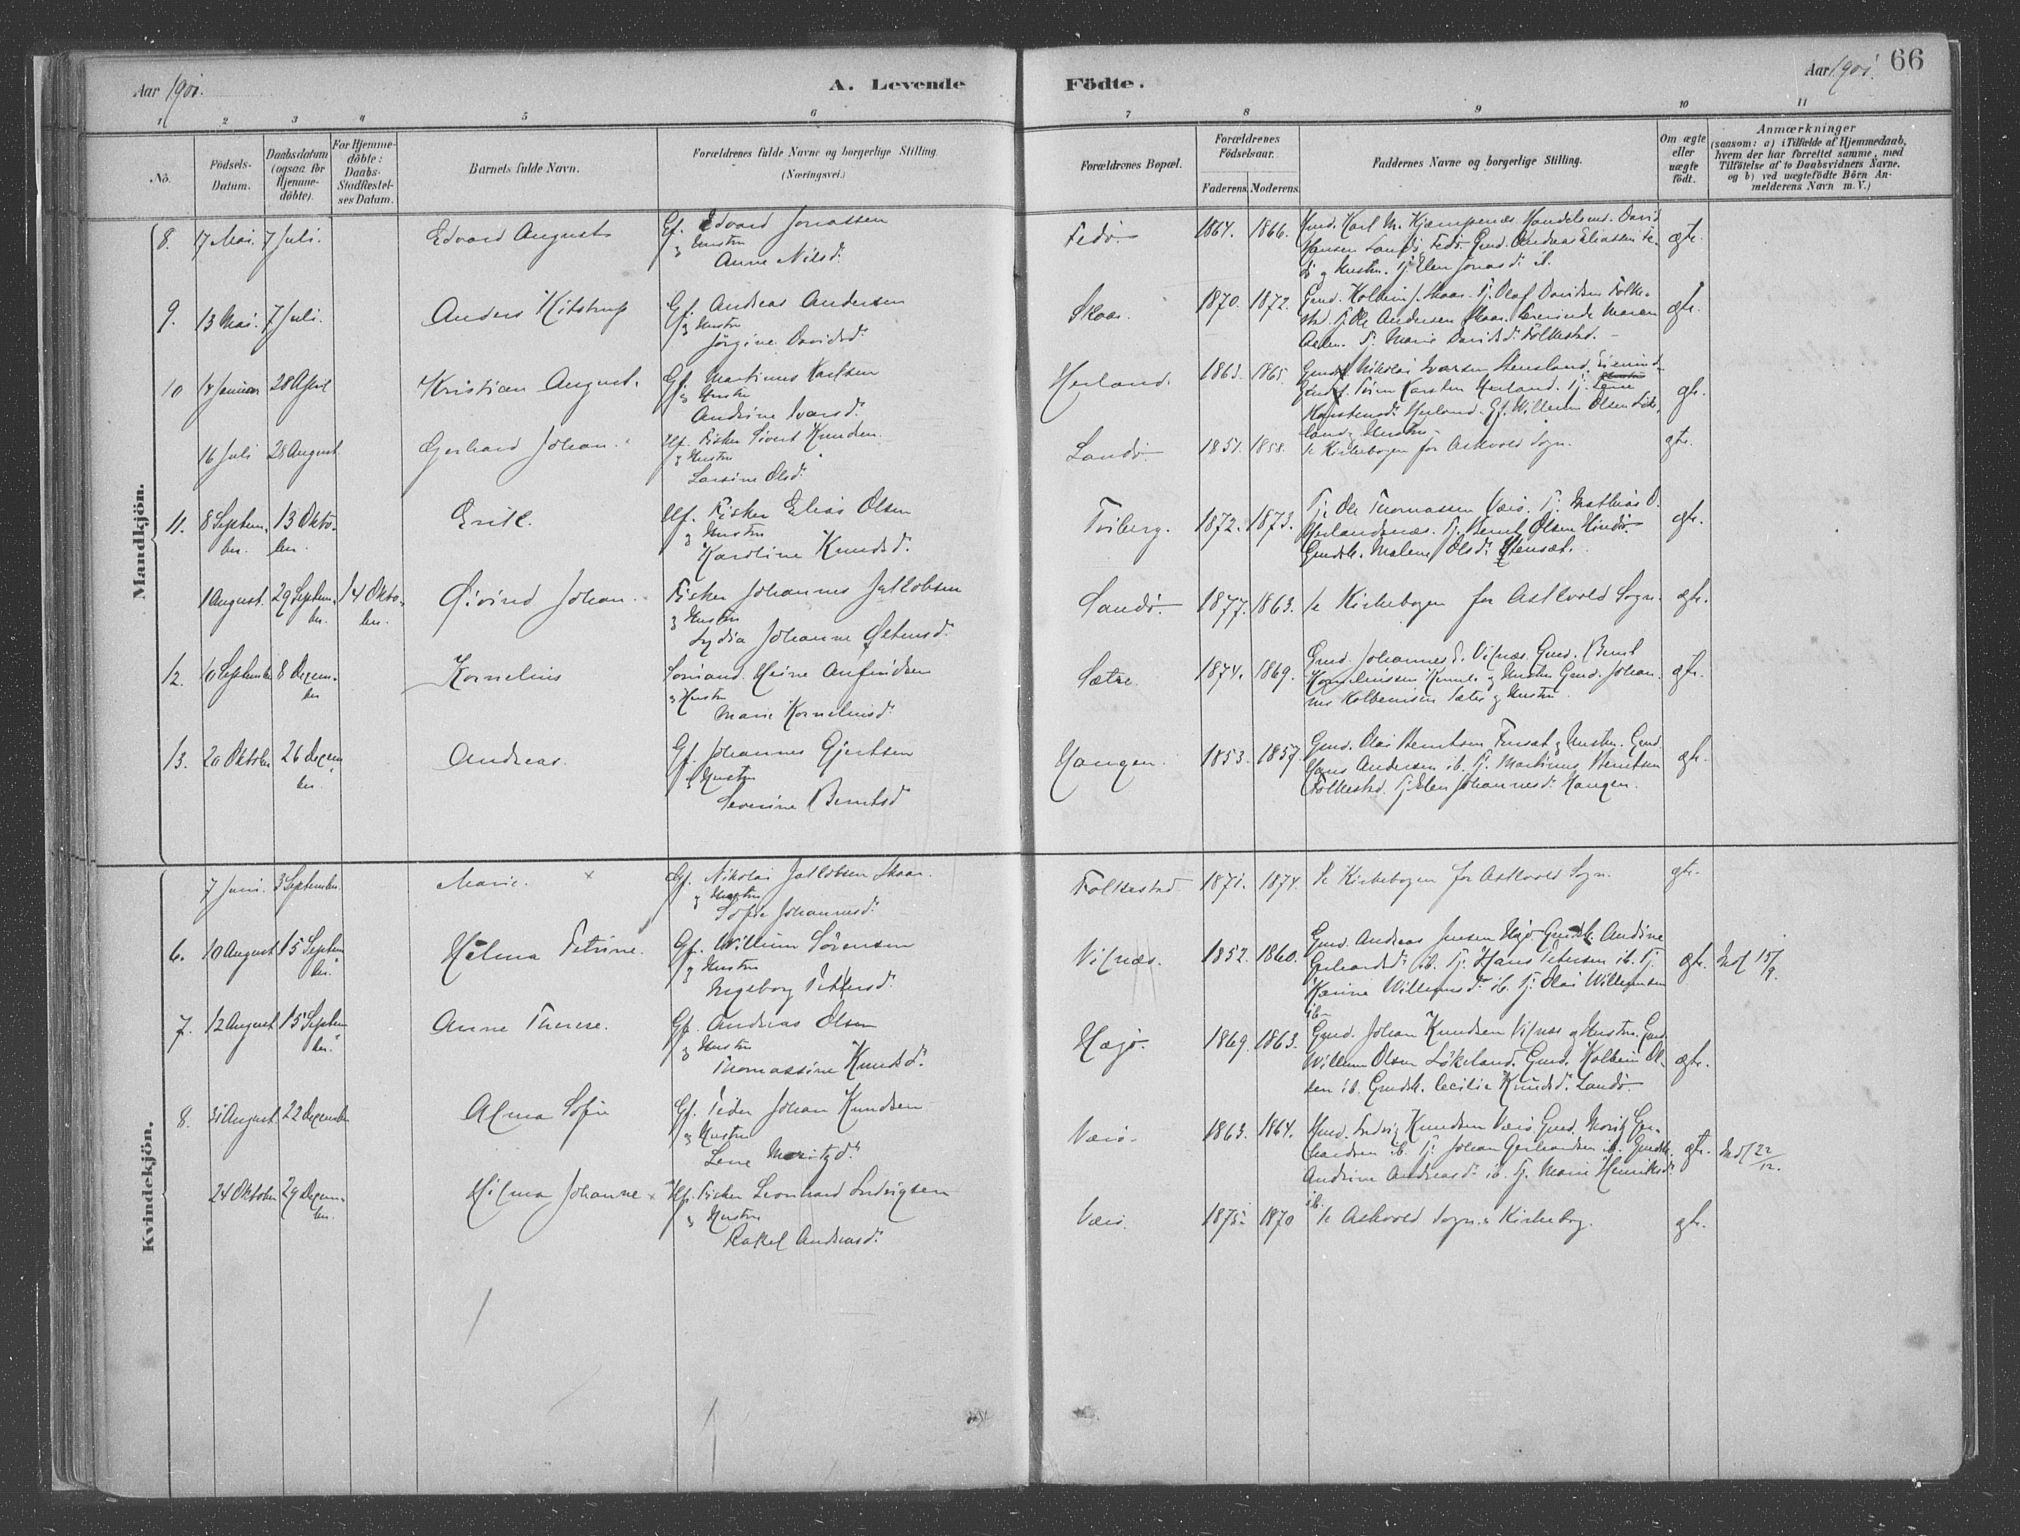 Aar 1901.
A. Levende
Födte.
Aar 1901.
66
1 2 3 4 5 6 7 8 9 10 11
No.
Födsels-
Datum.
Daabsdatum
(ogsaa for
Hjemme-
döbte).
For Hjemme-
döbte:
Daabs-
Stadfæstel-
ses Datum.
Barnets fulde Navn.
Forældrenes fulde Navne og borgerlige Stilling
(Næringsvei.)
Forældrenes Bopæl.
Forældrenes
Födselsaar.
Faderens. Moderens.
Faddernes Navne og borgerlige Stilling.
Om ægte
eller
uægte
födt.
Anmærkninger
(saasom: a) i Tilfælde af Hjemmedaab,
hvem der har forrettet samme, med
Tilföielse af to Daabsvidners Navne,
og b) ved uægtefödte Börn An-
melderens Navn m. V.)
Mandkjön.
8. 17 Mai. 7 Juli. Edvard August Gf. Edvard Jonassen
& Hustru
Anne Nilsd.
Fedö. 1864. 1866. Gmd. Karl M. Kjempenæs. Handelsmd. David
Hansen Landö, Fedö. Gmd. Andreas Eliassen Fe-
dö & Hustru. Pj. Elen Jonasd. ib. ægte.
9. 13 Mai. 7 Juli. Anders Kitstrup Gf. Andreas Andersen
& Hustru
Jörgine Davidsd.
Skaar. 1870. 1872. Gmd. Kolbein J. Skaar. Tj. Olaf Davidsen Folke-
stad. Tj. Ole Andersen Skaar. Lærerinde Maren
Aden. P. Marie Davidsd. Folkestad. ægte.
10 14 Januar 28 April Kristian August. Gf. Martinus Karlsen
& Hustru
Andrine Ivarsd.
Herland. 1863. 1865. Nikolai Ivarsen Stensland.
Karsten Herland. Pj. Lene
Karstensd. Herland. Gf. Willum Olsen Löke-
land & Hustru ægte.
16 Juli 28 August Gerhard Johan. Hf. Fisker Sivert Knudsen.
& Hustru
Larsine Olsd.
Landö. 1851. 1858. Se Kirkebogen for Askvold Sogn. ægte.
11. 8 Septem-
ber. 13 Okto-
ber. Erik. Hf. Fisker Elias Olsen
& Hustru
Karoline Knudsd.
Tviberg. 1872. 1873. Tj. Ole Thomassen Værö. Tj. Mathias O.
Herlandsnæs. Tj. Bernt Olsen Hindö
Gmdsk. Malene Olsd. Stensæt. ægte.
1 August. 29 Septem-
ber. 14 Okto-
ber. Öivind Johan. Fisker Johannes Jakobsen
& Hustru
Lydia Johanne Östensd.
Sandö. 1877. 1863. Se Kirkebogen for Askvold Sogn. ægte.
12. 10 September 8 Decem-
ber Kornelius Sömand Heine Anfindsen
& Hustru
Marie Korneliusd.
Sætre. 1874. 1869. Gmd. Johannes E. Vilnæs. Gmd. Bernt
Korneliussen & Hustru Gmd. Johan-
nes Kolbeinsen Sæter & Hustru. ægte.
13. 20 Oktober 26 Decem-
ber. Andreas. Gf. Johannes Gjertsen
& Hustru
Severine Berntsd
Hangen. 1853. 1857. Gmd. Olai Berntsen Fursæt & Hustru. Gmd.
Hans Andersen ib. Tj. Martinus Berntsen
Folkestad. Pj. Elen Johannesd. Hangen. ægte.
Kvindekjön.
7 Juni. 3 September. Marie. × Gf. Nikolai Jakobsen Skaar.
& Hustru
Sofie Johannesd.
Folkestad. 1871. 1874. Se Kirkebogen for Askvold Sogn. ægte.
6. 10 August 15 Septem-
ber. Hilma Petrine. Gf. Willum Sörensen
& Hustru
Ingeborg Pettersd.
Vilnæs. 1852. 1860. Gmd. Andreas Jensen Hæjö Gmdsk. Andine
Gerhardsd. ib. Tj. Hans Petersen ib. Pj.
Karine Willumsd. ib. Tj. Olai Willumsen
ib. ægte. Mod 15/9.
7. 12 August 15 Septem-
ber. Anne Therese. Gf. Andreas Olsen
& Hustru
Thomassine Knudsd.
Hæjö. 1869. 1863. Gmd. Johan Knudsen Vilnæs & Hustru. Gmd.
Willum Olsen Lökeland. Gmd. Kolbein Ol-
sen ib. Gmdsk. Cecilie Knudsd. Landö. ægte.
8. 31 August 22 December Alma Sofie Gf. Peder Johan Knudsen
& Hustru
Lene Moritzd.
Værö. 1863. 1864. Gmd. Ludvig Knudsen Værö. Gmd. Moritz Ger-
hardsen ib. Tj. Johan Gerhardsen ib. Gmdsk.
Andrine Andreasd. ib. Pj. Marie Henriksd.
ib. ægte. Mod 22/12.
24 Oktober 29 Decem-
ber. Hilma Johanne × Hf. Fisker Leonhard Ludvigsen
& Hustru
Rakel Andreasd.
Værö. 1875. 1870 Se Askvold Sogns Kirkebog. ægte.